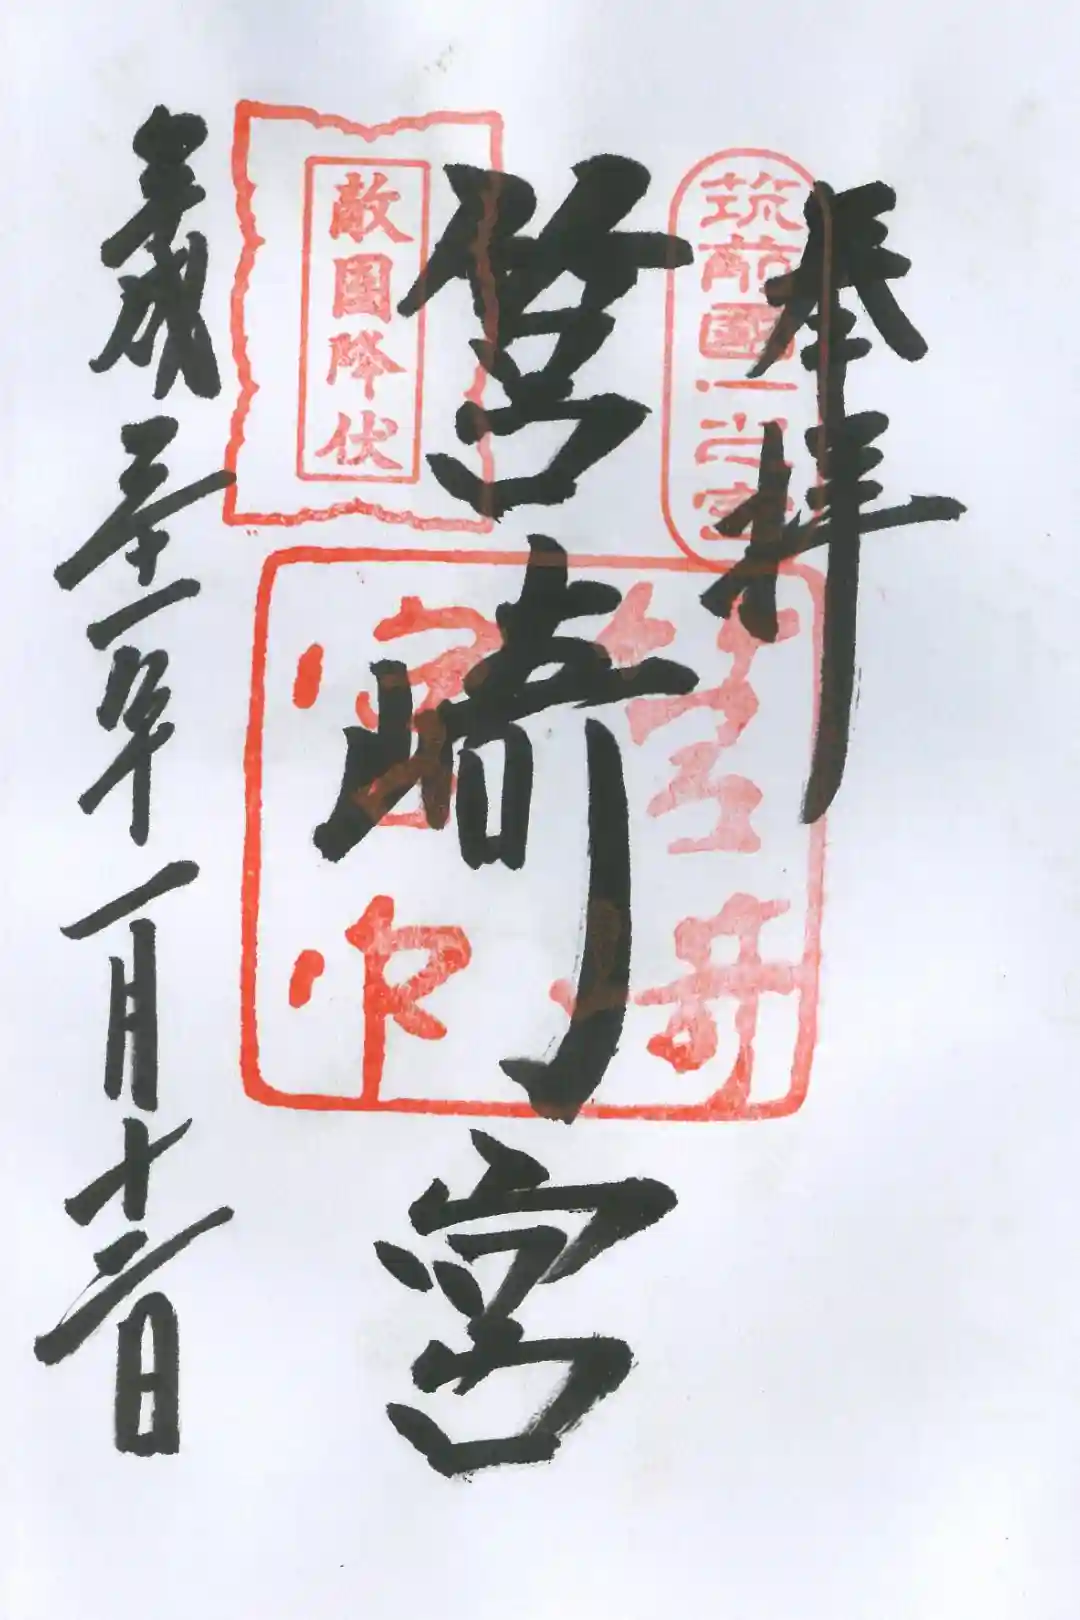 奉拝
筑前國一之宮
筥崎宮
筥崎宮印
敵國降伏
平成三十一年一月十二日